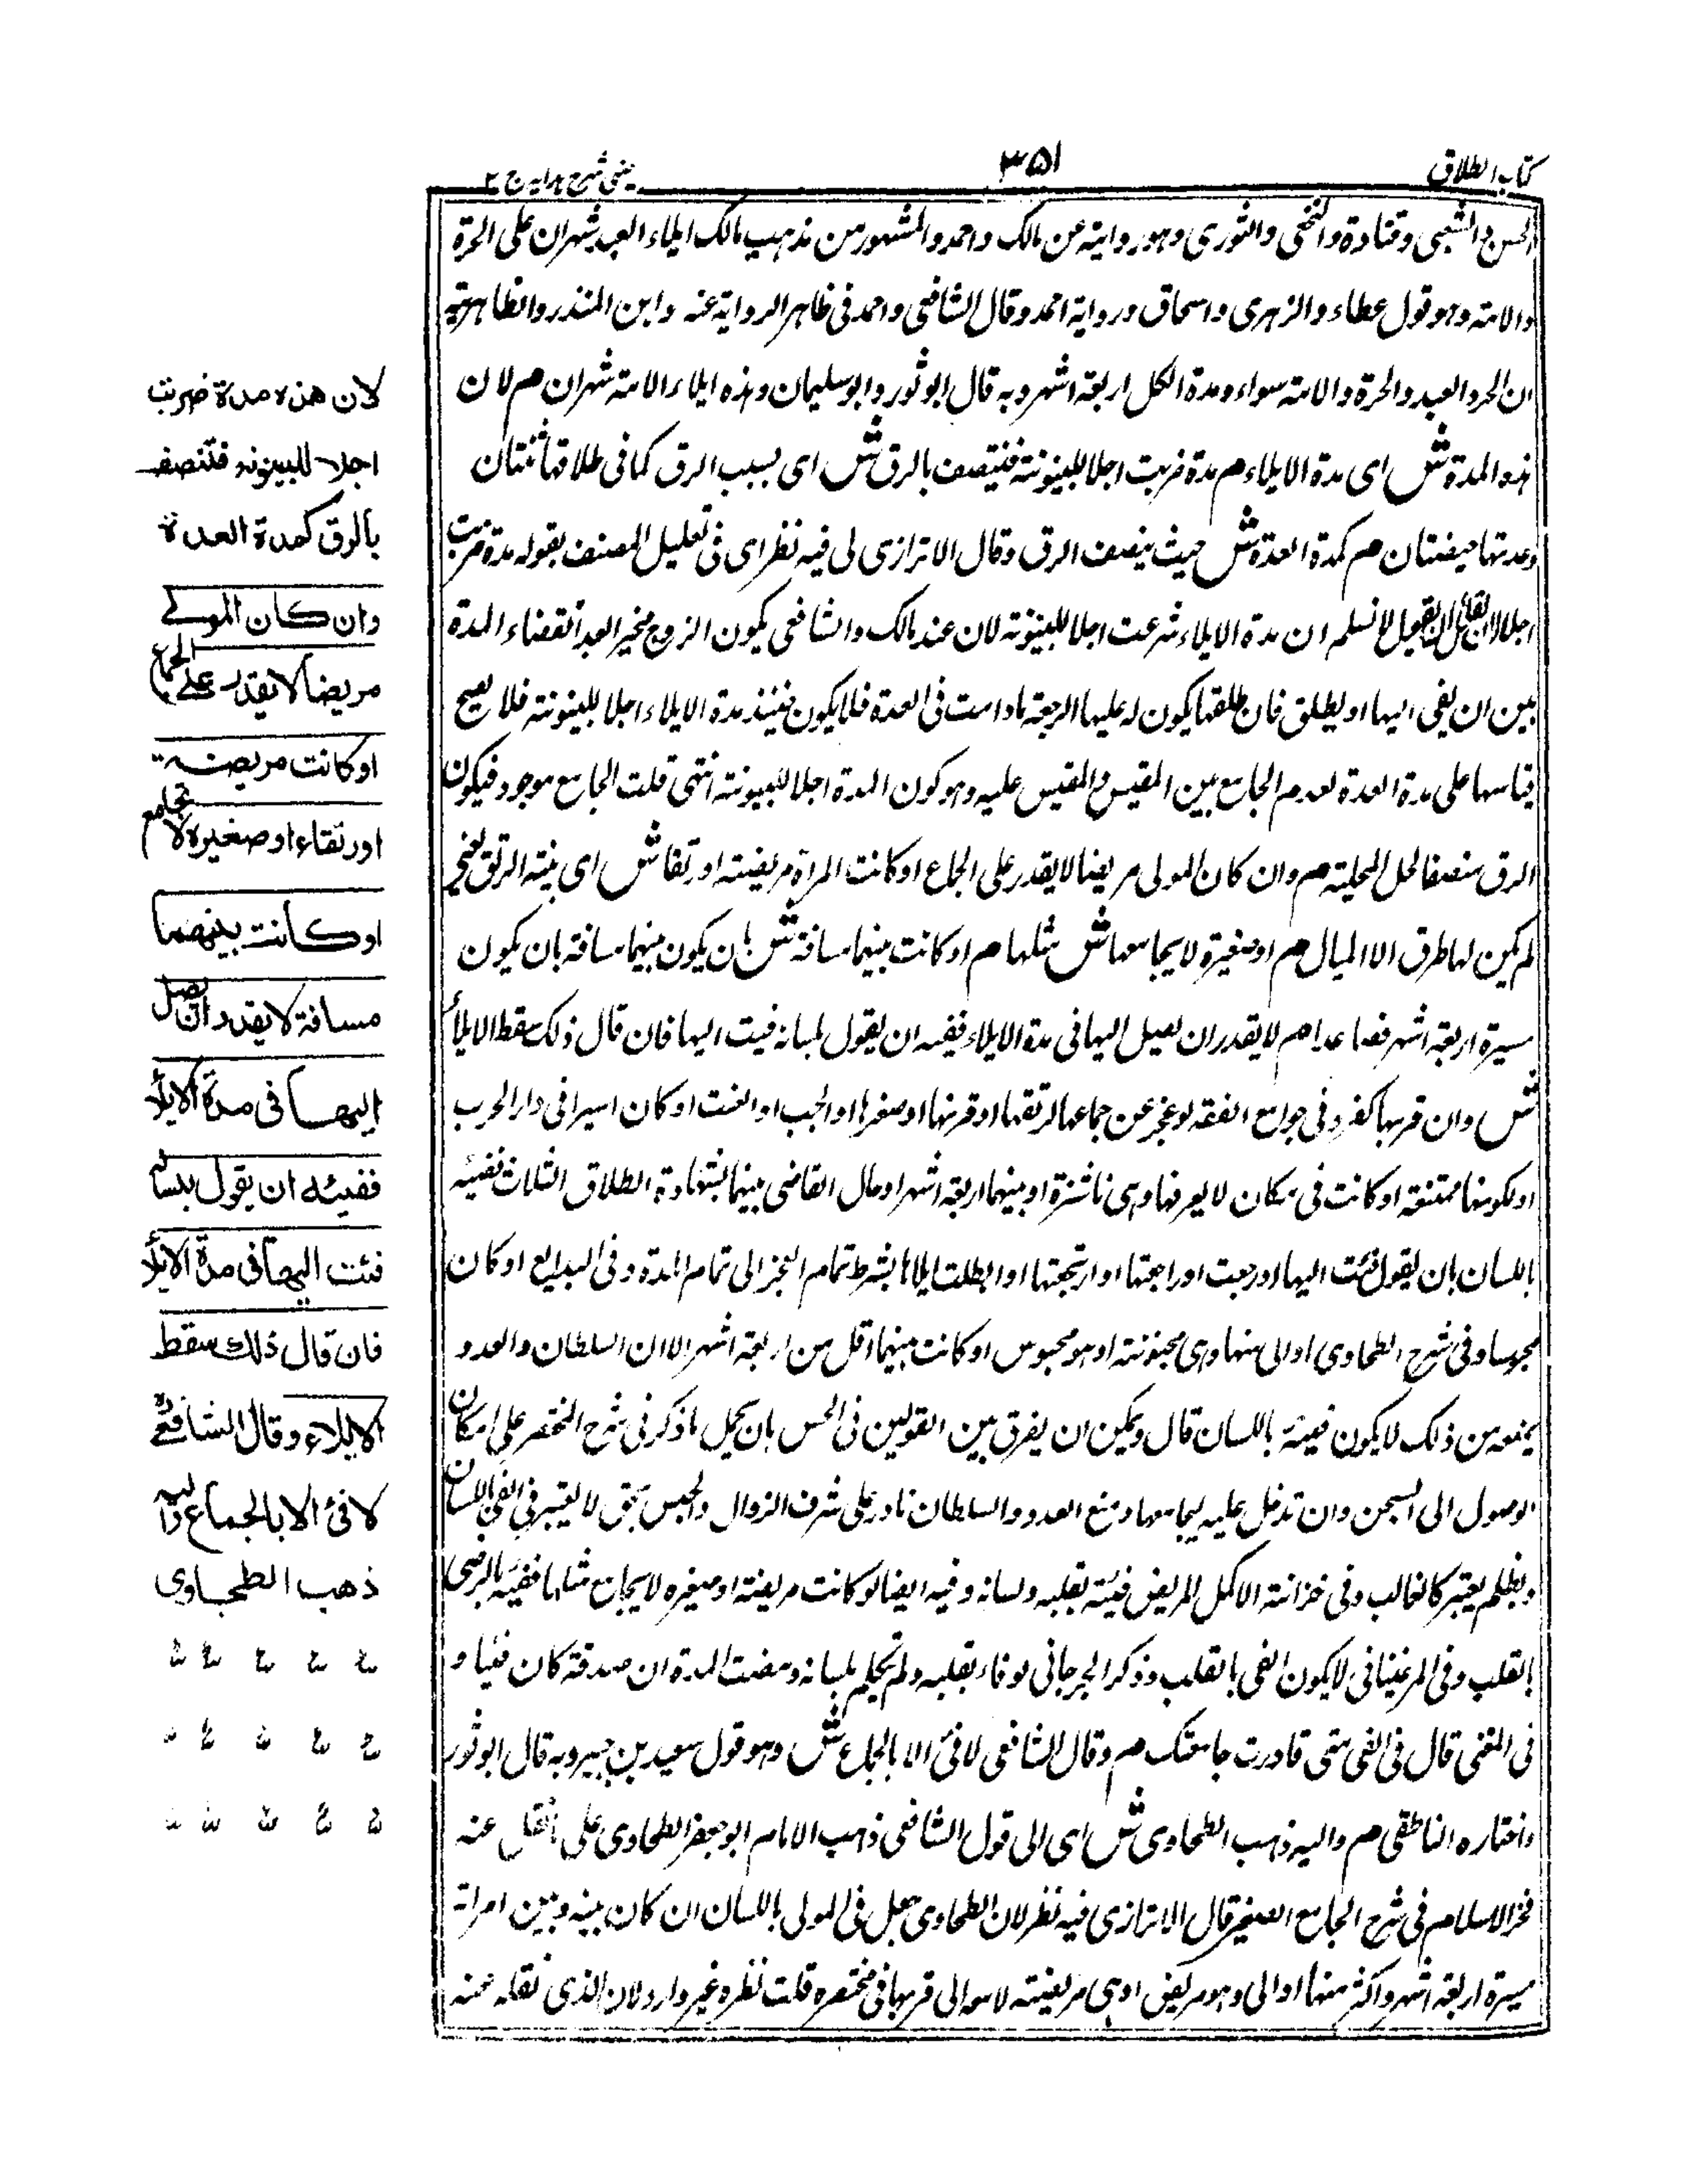 كتاب الطلاق
٣٥١
عينى شرح هدايه ج ٢
الحسن والشعبي وقتادة والنخعي والثوري وهو رواية عن مالك واحمد والمشهور من مذهب مالك ايلاء العبد شهران على الحرة
والامة وهو قول عطاء والزهري واسحاق ورواية احمد وقال الشافعي واحمد في ظاهر الرواية عنه وابن المنذر والظاهرية
ان الحر والعبد والحرة والامة سواء ومدة الكل اربعة اشهر وبه قال ابو ثور وابو سليمان وهذه ايلاء الامة شهران م لان
هذه المدة ش اى مدة الايلاء م مدة ضربت اجلا للبينونة فتنصف بالرق ش اى بسبب الرق كما في طلاقها ثنتان
وعدتها حيضتان م كمدة العدة ش حيث ينصف الرق وقال الاترازي لي فيه نظر اى في تعليل المصنف بقوله مدة ضربت
اجلا لان لقائل ان يقول لا نسلم ان مدة الايلاء شرعت اجلا للبينونة لان عند مالك والشافعي يكون الزوج مخير العبد انقضاء المدة
بين ان يفئ اليها او يطلق فان طلقها يكون له عليها الرجعة مادامت في العدة فلا يكون حينئذ مدة الايلاء اجلا للبينونة فلا يصح
قياسها على مدة العدة لعدم الجامع بين المقيس والمقيس عليه وهو كون المدة اجلا للبينونة انتهى قلت الجامع موجود فيكون
الرق منصفا لحل المحلية م وان كان المولى مريضا لا يقدر على الجماع او كانت المراة مريضة او رتقا ش اى بينة الرتق يعني
لم يكن لها طرق الا المبال م او صغيرة لا يجامعها ش مثلها م او كانت بينهما مسافة ش بان يكون بينهما مسافة بان يكون
مسيرة اربعة اشهر فصاعدا م لا يقدر ان يصل اليها في مدة الايلاء ففيئه ان يقول بلسانه فيت اليها فان قال ذلك سقط الايلاء
ش وان قربها كفر وفي جوامع الفقه لو عجز عن جماعها لرتقها او قرنها او صغرها او الجب او العنت او كان اسيرا في دار الحرب
او لكونها ممتنعة او كانت في مكان لا يعرفها وهي ناشزة او بينهما اربعة اشهر او حال القاضي بينهما بشهادة الطلاق الثلاث ففيئه
باللسان بان يقول فئت اليها او رجعت او راجعتها او ارتجعتها او ابطلت ايلاءها بشرط تمام العجز الى تمام المدة وفي البدايع او كان
محبوسا وفي شرح الطحاوي او الى منها وهي مجنونة او هو محبوس او كانت بينهما اقل من اربعة اشهر الا ان السلطان والعدو
يمنعه من ذلك لا يكون فيئه باللسان قال ويمكن ان يفرق بين القولين في الحبس بان يحمل ما ذكر في شرح المختصر على امكان
الوصول الى السجن وان تدخل عليه ليجامعها ومنع العدو والسلطان نادر على شرف الزوال والحبس بحق لا يعتبر في الفئ باللسان
وبظلم يعتبر كالغالب وفي خزانة الاكمل المريض فيئه بقلبه ولسانه وفيه ايضا لو كانت مريضة او صغيره لا يجامع مثلها ففيئه بالرضى
بالقلب وفي المرغيناني لا يكون الفئ بالقلب وذكر الجرجاني لو فاء بقلبه ولم يتكلم بلسانه ومضت المدة ان صدقته كان فيئا و
في المغني قال في الفئ متى قادرت جامعتك م وقال الشافعي لا فئ الا بالجماع ش وهو قول سعيد بن جبير وبه قال ابو ثور
واختاره الناطقي م واليه ذهب الطحاوي ش اى الى قول الشافعي ذهب الامام ابو جعفر الطحاوي على ما نقل عنه
فخر الاسلام في شرح الجامع الصغير قال الاترازي فيه نظر لان الطحاوي جعل فئ المولى باللسان ان كان بينه وبين امراته
مسيرة اربعة اشهر واكثر منها او الى وهو مريض او هي مريضة لا سوالى قربها في مختصره قلت نظره غير وارد لان الذي نقله عنه
لان هذه مدة ضربت
اجلا للبينونة فتنصف
بالرق كمدة العدة
وان كان المولى
مريضا لا يقدر على الجماع
او كانت مريضة
او رتقاء او صغيرة لا تجامع
او كانت بينهما
مسافة لا يقدر ان يصل
اليها فى مدة الايلاء
ففيئه ان يقول بلسانه
فئت اليها فى مدة الايلاء
فان قال ذلك سقط
الايلاء وقال الشافعى
لا فئ الا بالجماع واليه
ذهب الطحاوى